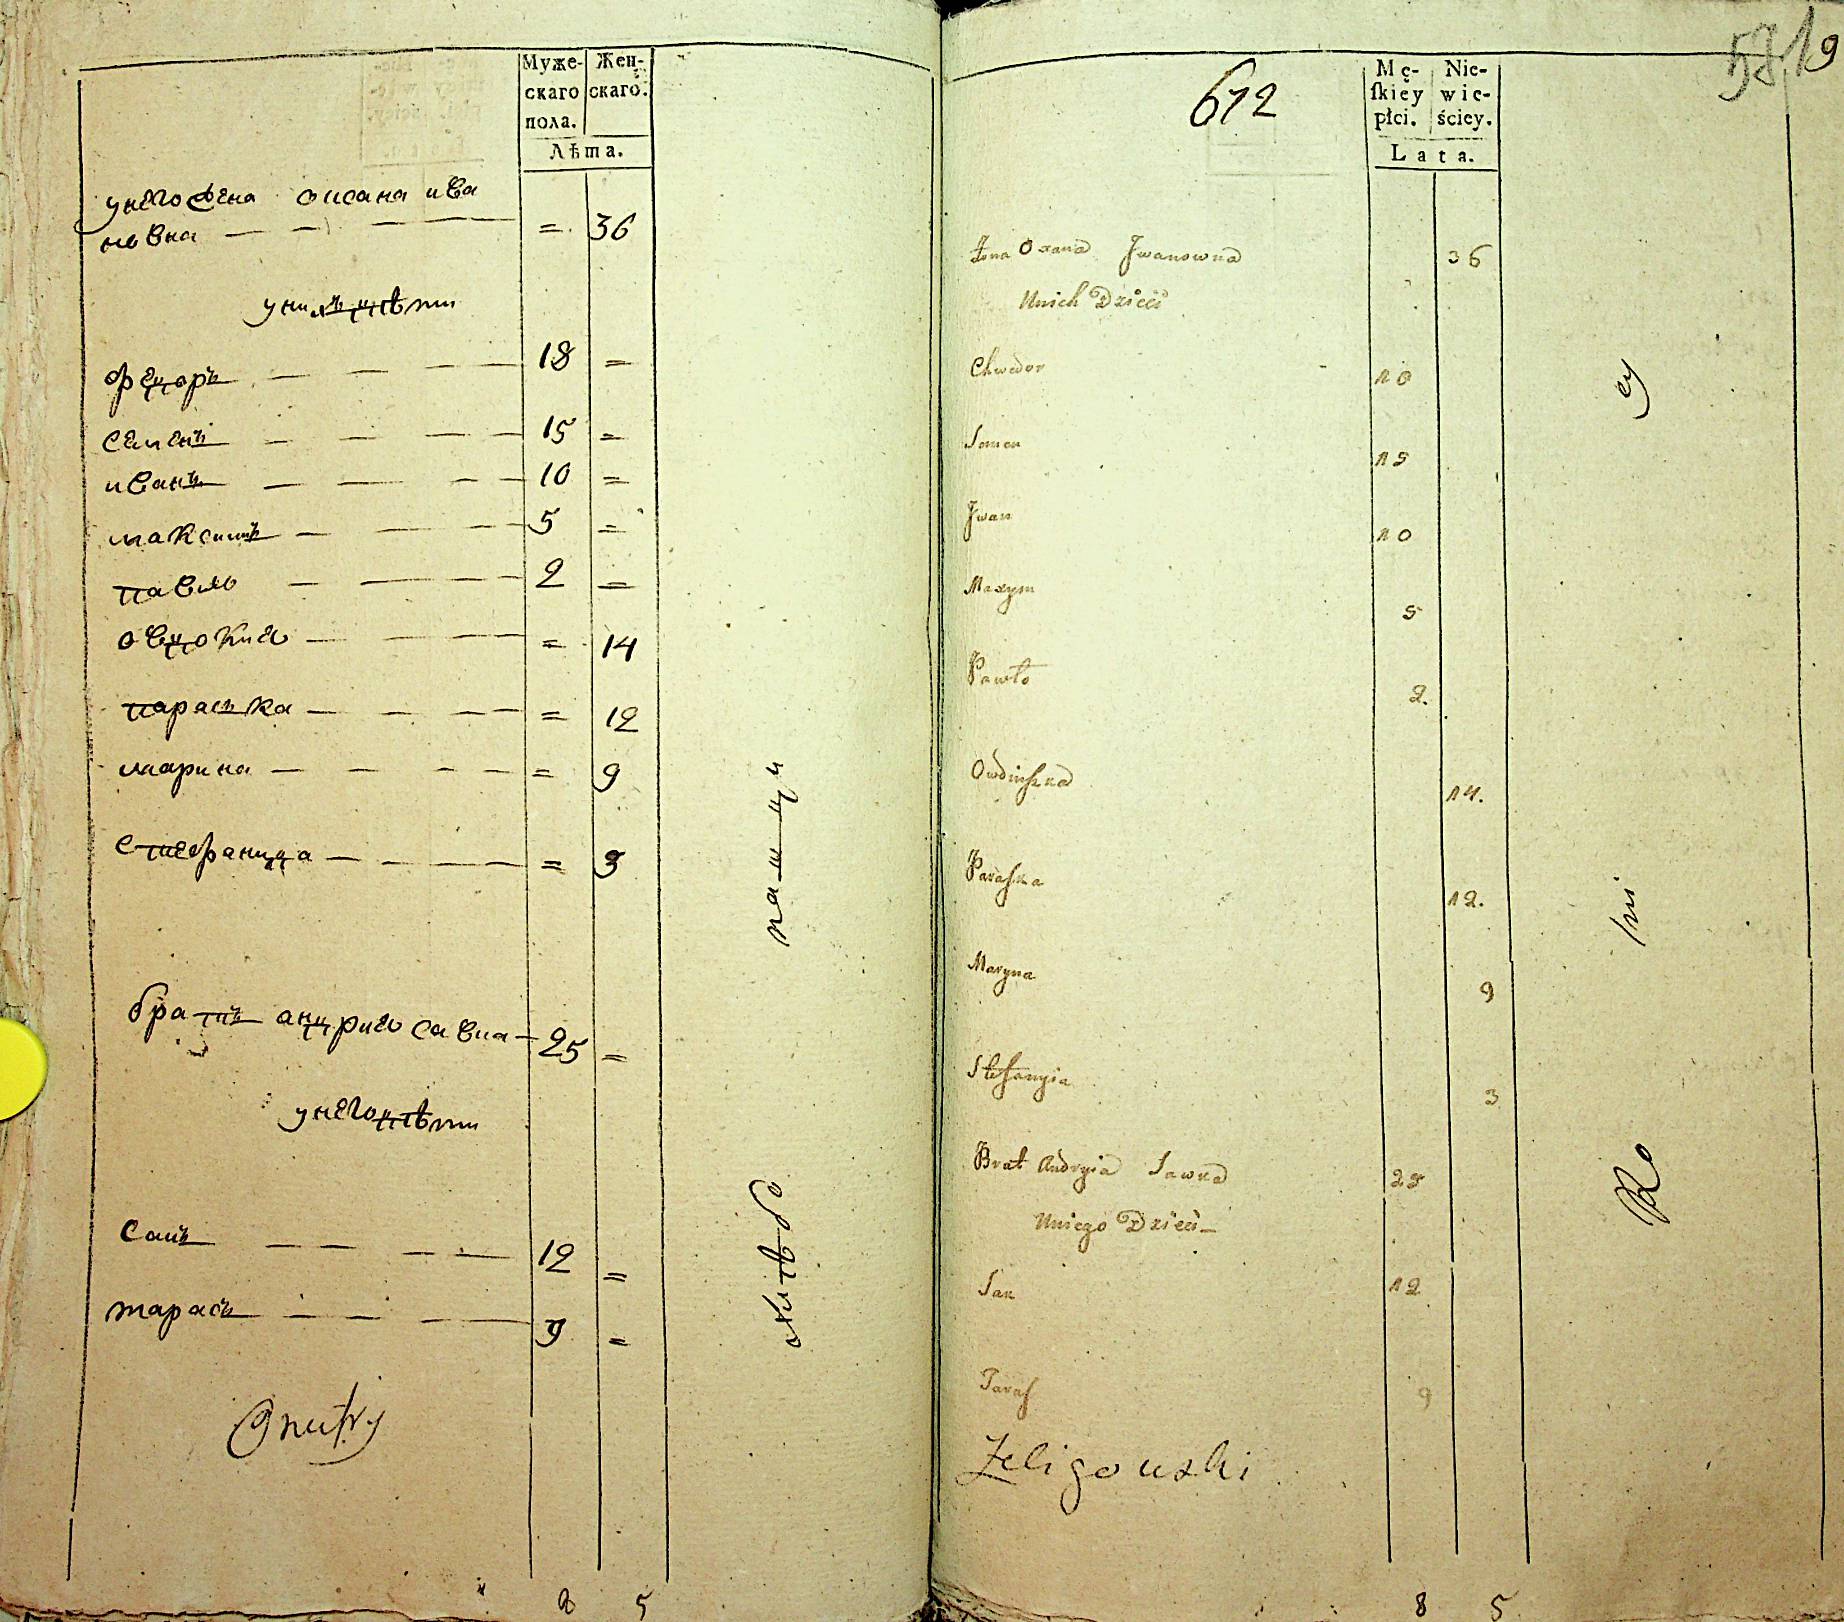 Муже-
скаго
пола.
Жен-
скаго.
Лѣта.
унего жена оксана ива
новна 36
унихъ дѣти
федоръ 18 =
семенъ 15 =
иванъ 10 =
максимъ 5 =
павло 2 =
овдокия = 14
параска = 12
марина = 9
стефанида = 3
братъ андрий савка 25 =
унего дѣти
санъ 12 =
тарасъ 9 =
8 5
612
19
Mę-
ſkiey
płci.
Nie-
wie-
ściey.
Lata.
Żona Oxana Jwanowna 36
Unich Dzieci
Chwedor 18
Semen 15
Jwan 10
Maxym 5
Pawło 2.
Owdiuszka 14.
Paraska 12.
Maryna 9
Stefanyia 3
Brat Andryia Sawka 25
Uniego Dzieci
San 12
Taras 9
Zeligowski
8 5